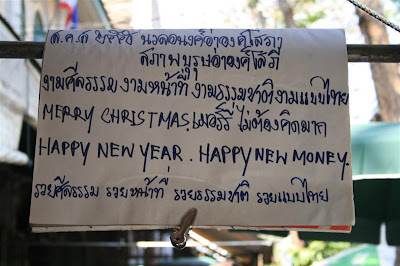 ส.ค.ส นวลอนงค์อ่าองค์โสภา
สุภาพบุรุษอ่าองค์โสภี
งามศีลธรรม งามหน้าที่ งามธรรมชาติ งามแบบไทย
MERRY CHRISTMAS. เมอร์รี่ ไม่ต้องคิดมาก
HAPPY NEW YEAR. HAPPY NEW MONEY.
รวยศีลธรรม รวยหน้าที่ รวยธรรมชาติ รวยแบบไทย